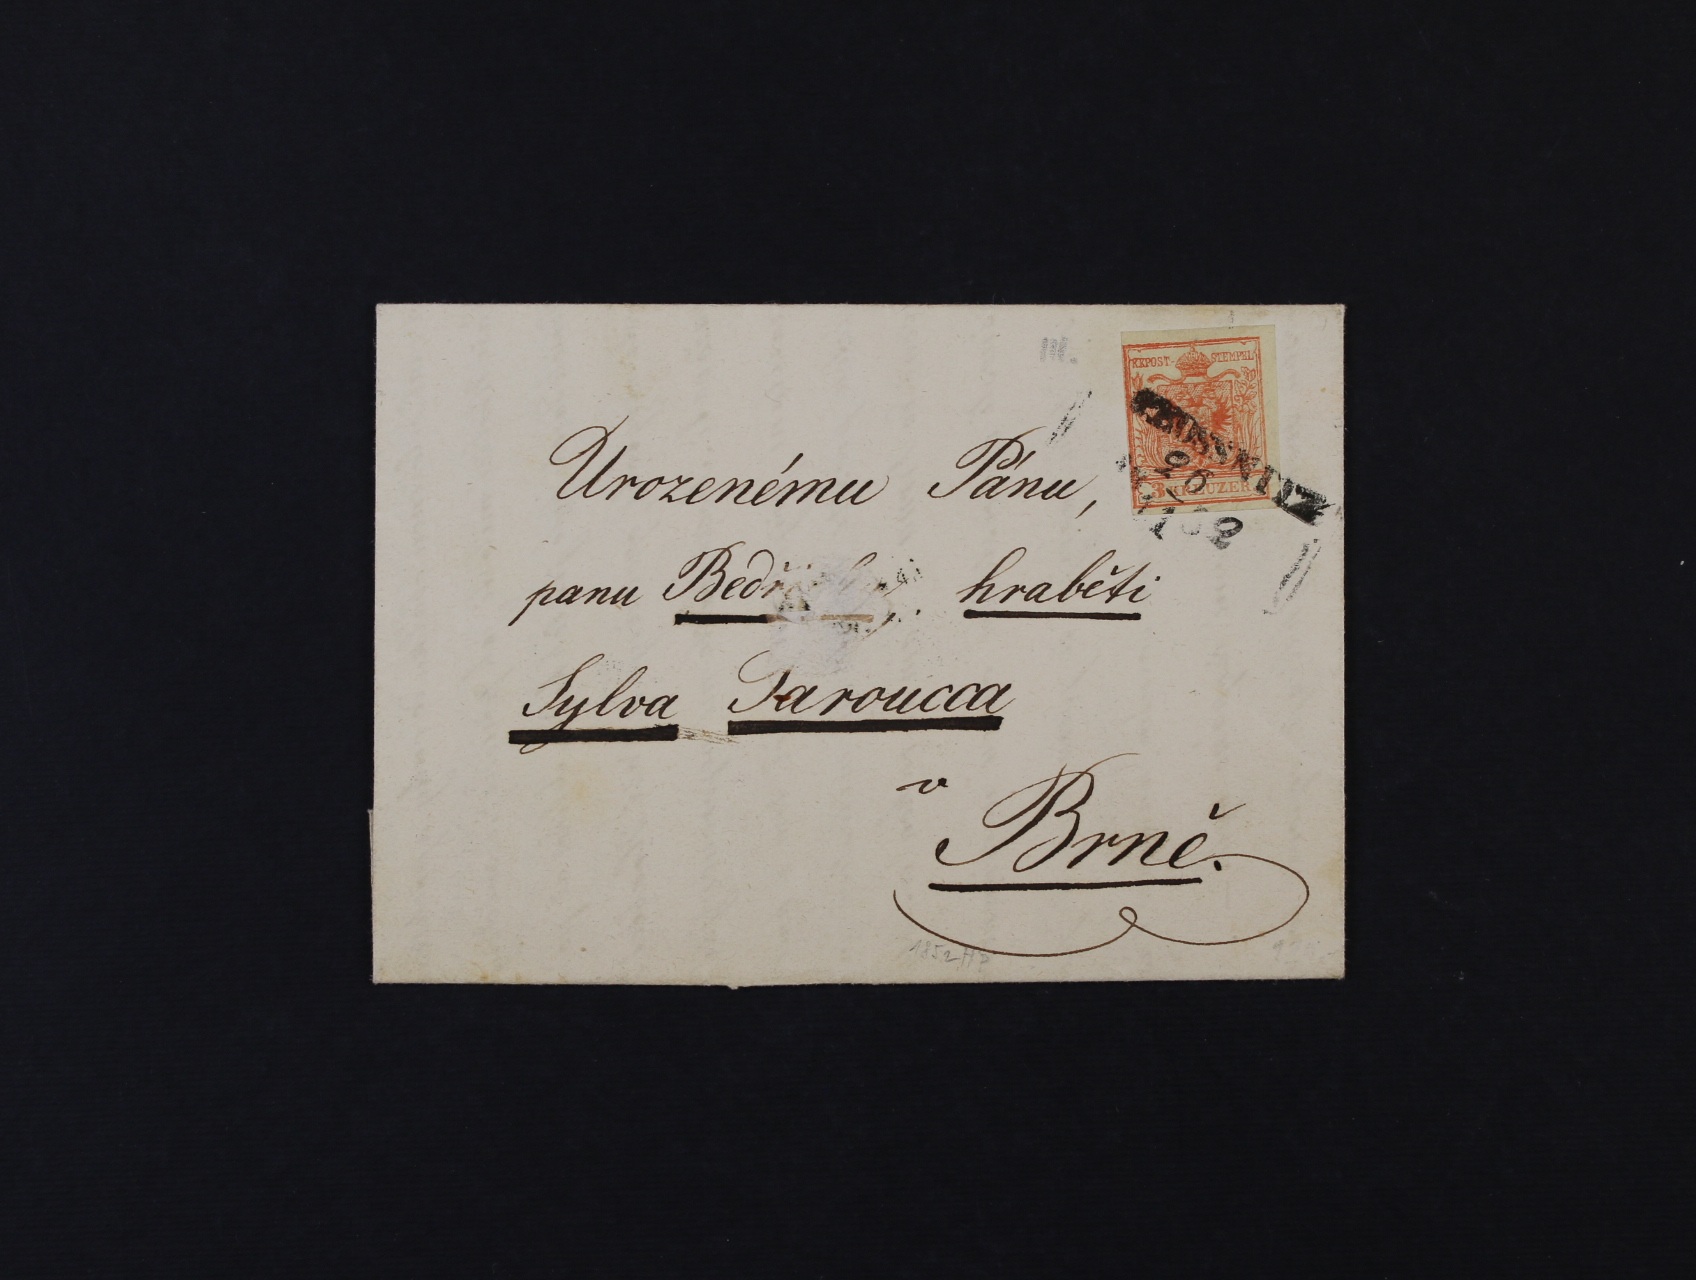 III.
KKPOST-STEMPEL
3 KREUZER
26
Urozenému Pánu,
panu hraběti
Sylva Taroucca
v
Brně.
1852